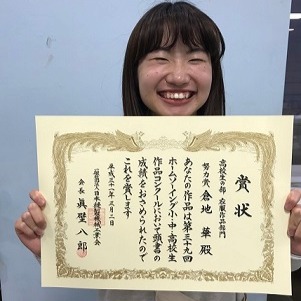 賞状
高校生の部 衣服作品部門
努力賞 倉地 華 殿
あなたの作品は第三十九回
ホームソーイング小・中・高校生
作品コンクールにおいて頭書の
成績をおさめられたので
これを賞します
平成三十一年三月二日
一般社団法人日本縫製機械工業会
会長 眞壁 八郎